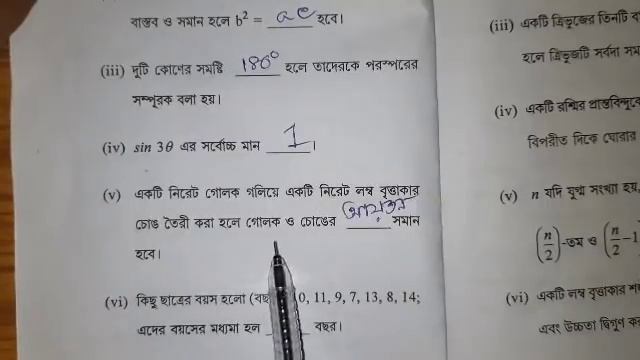 বাস্তব ও সমান হলে b² = ac হবে।
(iii) দুটি কোণের সমষ্টি 180° হলে তাদেরকে পরস্পরের
সম্পূরক বলা হয়।
(iv) sin 3θ এর সর্বোচ্চ মান 1।
(v) একটি নিরেট গোলক গলিয়ে একটি নিরেট লম্ব বৃত্তাকার
চোঙ তৈরী করা হলে গোলক ও চোঙের আয়তন সমান
হবে।
(vi) কিছু ছাত্রের বয়স হলো (বছ 10, 11, 9, 7, 13, 8, 14;
এদের বয়সের মধ্যমা হল বছর।
(iii) একটি ত্রিভুজের তিনটি
হলে ত্রিভুজটি সর্বদা
(iv) একটি রশ্মির প্রান্তবিন্দুকে
বিপরীত দিকে ঘোরার
(v) n যদি যুগ্ম সংখ্যা হয়,
(n/2)-তম ও (n/2 – 1
(vi) একটি লম্ব বৃত্তাকার
এবং উচ্চতা দ্বিগুণ